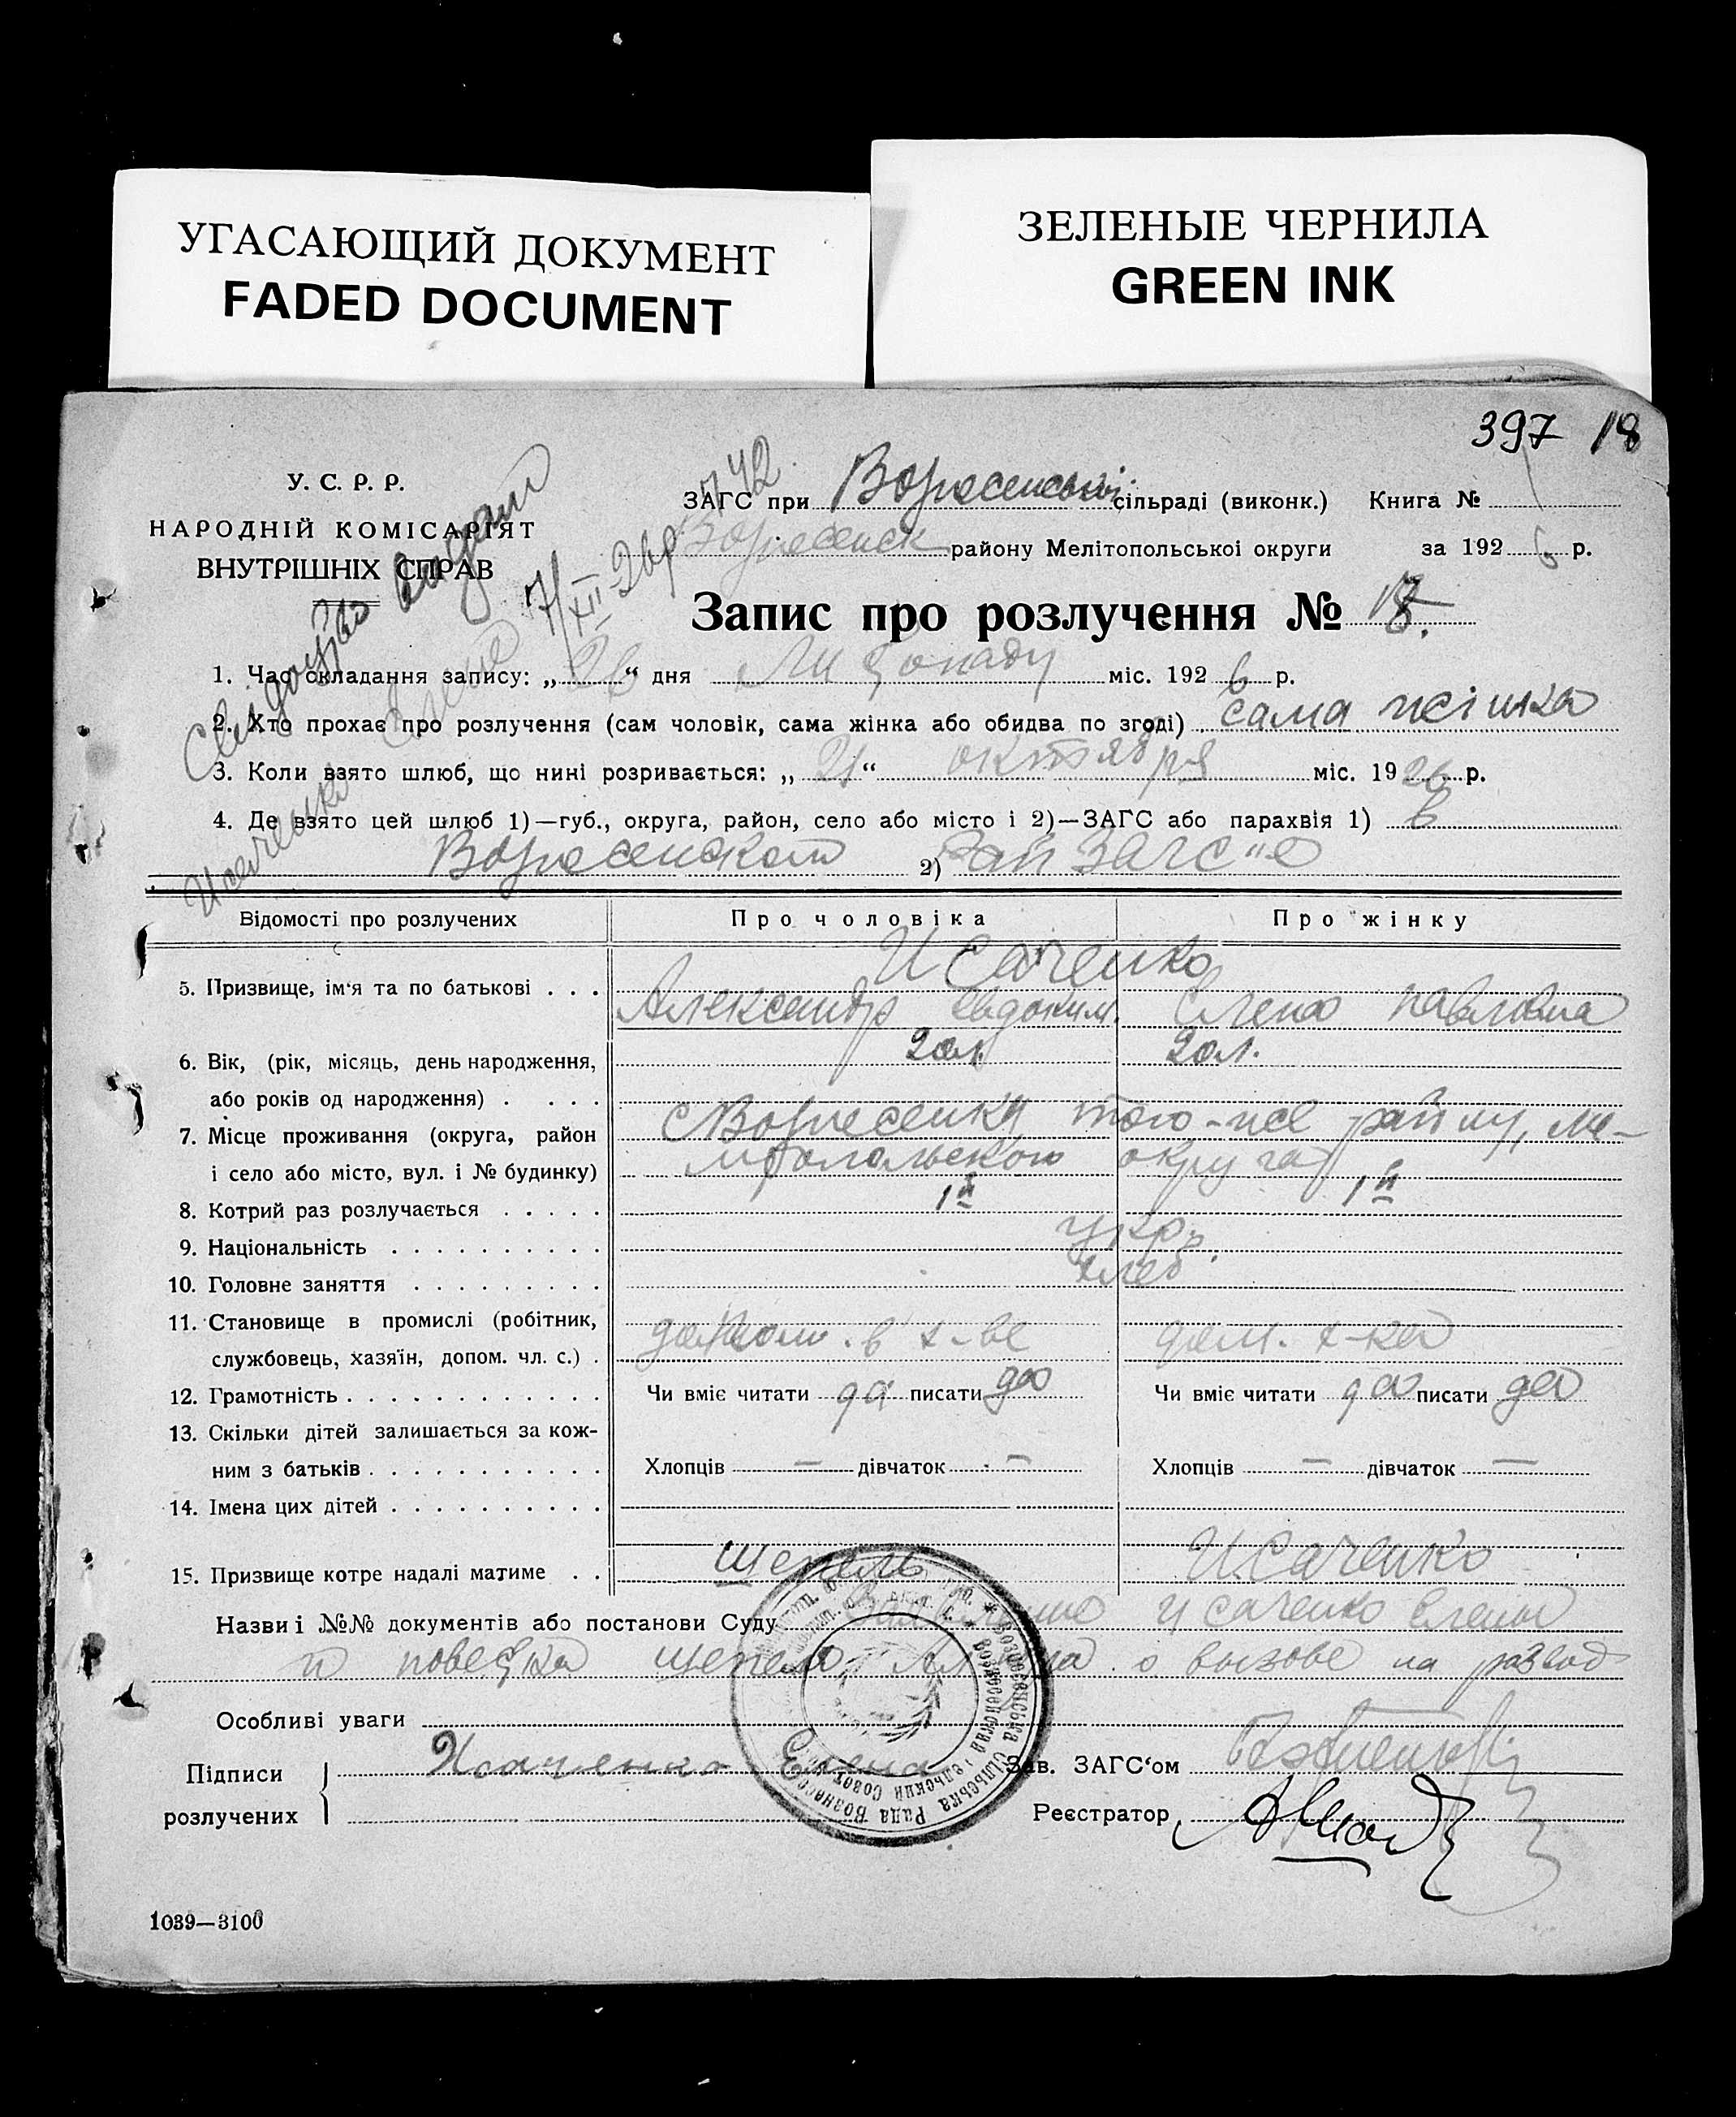 УГАСАЮЩИЙ ДОКУМЕНТ
FADED DOCUMENT
ЗЕЛЕНЫЕ ЧЕРНИЛА
GREEN INK
397 18
У. С. Р. Р.
НАРОДНІЙ КОМІСАРІЯТ
ВНУТРІШНІХ СПРАВ
ЗАГС при Вознесенській сільраді (виконк.) Книга №
Вознесенск району Мелітопольської округи за 1926 р.
Запис про розлучення № 18.
1. Час складання запису: „26“ дня Листопаду міс. 1926 р.
2. Хто прохає про розлучення (сам чоловік, сама жінка або обидва по згоді) сама жінка
3. Коли взято шлюб, що нині розривається: „21“ октября міс. 1926 р.
4. Де взято цей шлюб 1)—губ., округа, район, село або місто і 2)—ЗАГС або парахвія 1) в
Вознесенском 2) Рай ЗАГС'е
Відомості про розлучених Про чоловіка Про жінку
Исаченко
5. Призвище, ім'я та по батькові . . . Александр Евдоким. Елена Павловна
6. Вік, (рік, місяць, день народження, 20 л. 20 л.
або років од народження) . . . .
7. Місце проживання (округа, район с Вознесенки того-же району, Ме-
і село або місто, вул. і № будинку) округа
8. Котрий раз розлучається . . . . . 1й 1й
9. Національність . . . . . . . . . . укр.
10. Головне заняття . . . . . . . . . хлеб
11. Становище в промислі (робітник,
службовець, хазяїн, допом. чл. с.) . в х-ве дом. х-ка
12. Грамотність . . . . . . . . . . . Чи вміє читати да писати да Чи вміє читати да писати да
13. Скільки дітей залишається за кож-
ним з батьків . . . . . . . . . . . Хлопців — дівчаток — Хлопців — дівчаток —
14. Імена цих дітей . . . . . . . . . .
15. Призвище котре надалі матиме . . Щепель Исаченко
Назви і №№ документів або постанови Суду Исаченко Елены
и повестка о вызове на развод
Особливі уваги
Підписи Исаченко Елена Зав. ЗАГС'ом
розлучених Реєстратор
1039—3100